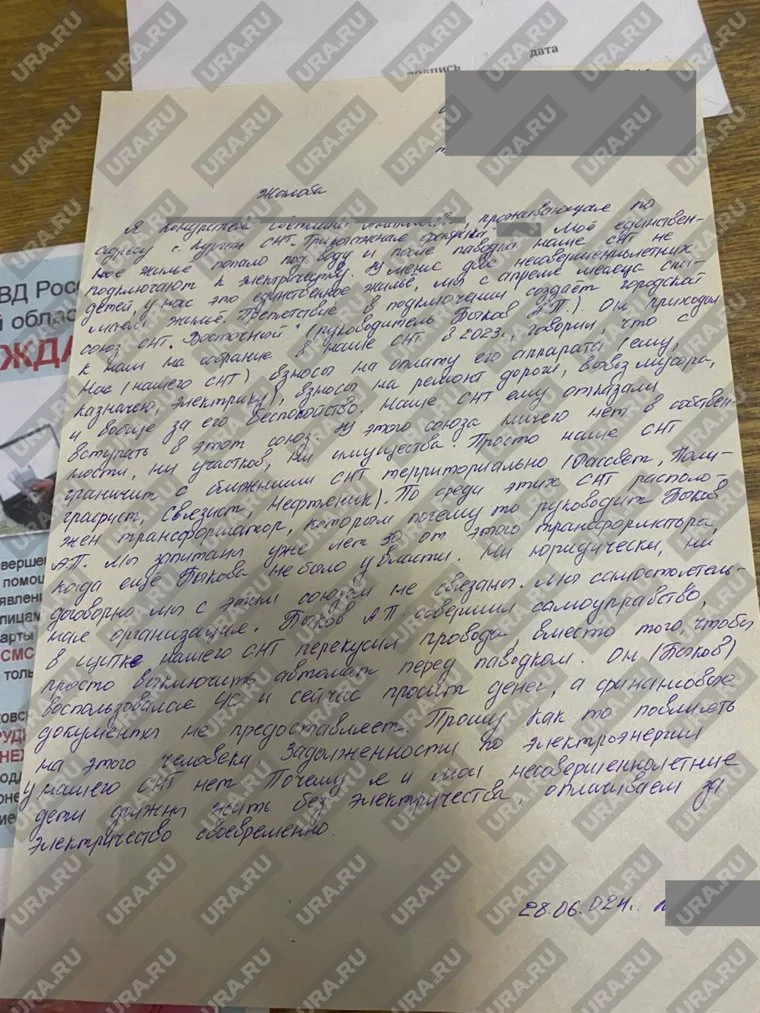 дата
подпись
Жалоба
Я проживающая по
адресу г. Курган СНТ Трикотажная фабрика, Моё единствен-
ное жильё попало под воду и после паводка наше СНТ не
подключают к электричеству. У меня двое несовершеннолетних
детей, у нас это единственное жильё, мы с апреля месяца
жильё. Препятствие в подключении создаёт городской
союз СНТ "Восточный" (руководитель Быков А.П.). Он приходил
к нам на собрание в наше СНТ в 2023г, говорил, что с
нас (нашего СНТ) взносы на оплату его аппарата (ему,
казначею, электрику), взносы на ремонт дороги, вывоз мусора,
и вообще за его беспокойство. Наше СНТ ему отказали
вступать в этот союз. У этого союза ничего нет в собствен-
ности, ни участков, ни имущества. Просто наше СНТ
граничит с ближними СНТ территориально (Рассвет, Поли-
графист, Связист, Нефтяник). По среди этих СНТ располо-
жен трансформатор, которым почему то руководит Быков
АП. Мы запитаны уже лет 30 от этого трансформатора,
когда еще Быкова не было у власти. Ни юридически, ни
договорно мы с этим союзом не связаны. Мы самостоятель-
ная организация. Быков АП совершил самоуправство,
в щитке нашего СНТ перекусил провода, вместо того, чтобы
просто выключить автомат перед паводком. Он (Быков)
воспользовался ЧС и сейчас просит денег, а финансовые
документы не предоставляет. Прошу как то повлиять
на этого человека. Задолженности по электроэнергии
у нашего СНТ нет. Почему я и мои несовершеннолетние
дети должны жить без электричества, оплачиваем за
электричество своевременно.
28.06.024г.
ВД Рос
й облас
ЖДА
вершен
помощ
явлени
лицам
арты
СМС
толь
URA.RU